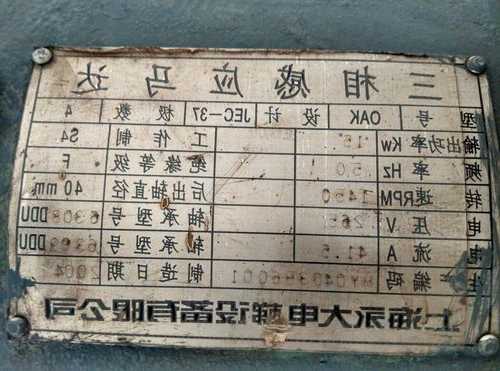 三相感应马达
型号 OAK 设计 JEC-37 极数 4
输出功率 Kw 15 工作制 S4
频率 Hz 50 绝缘等级 F
转速 RPM 1450 后出轴直径 40 mm
电压 V 265 轴承型号 6308 DDU
电流 A 41.5 轴承型号 DDU
生产编码 制造日期 2004
上海永大电梯设备有限公司